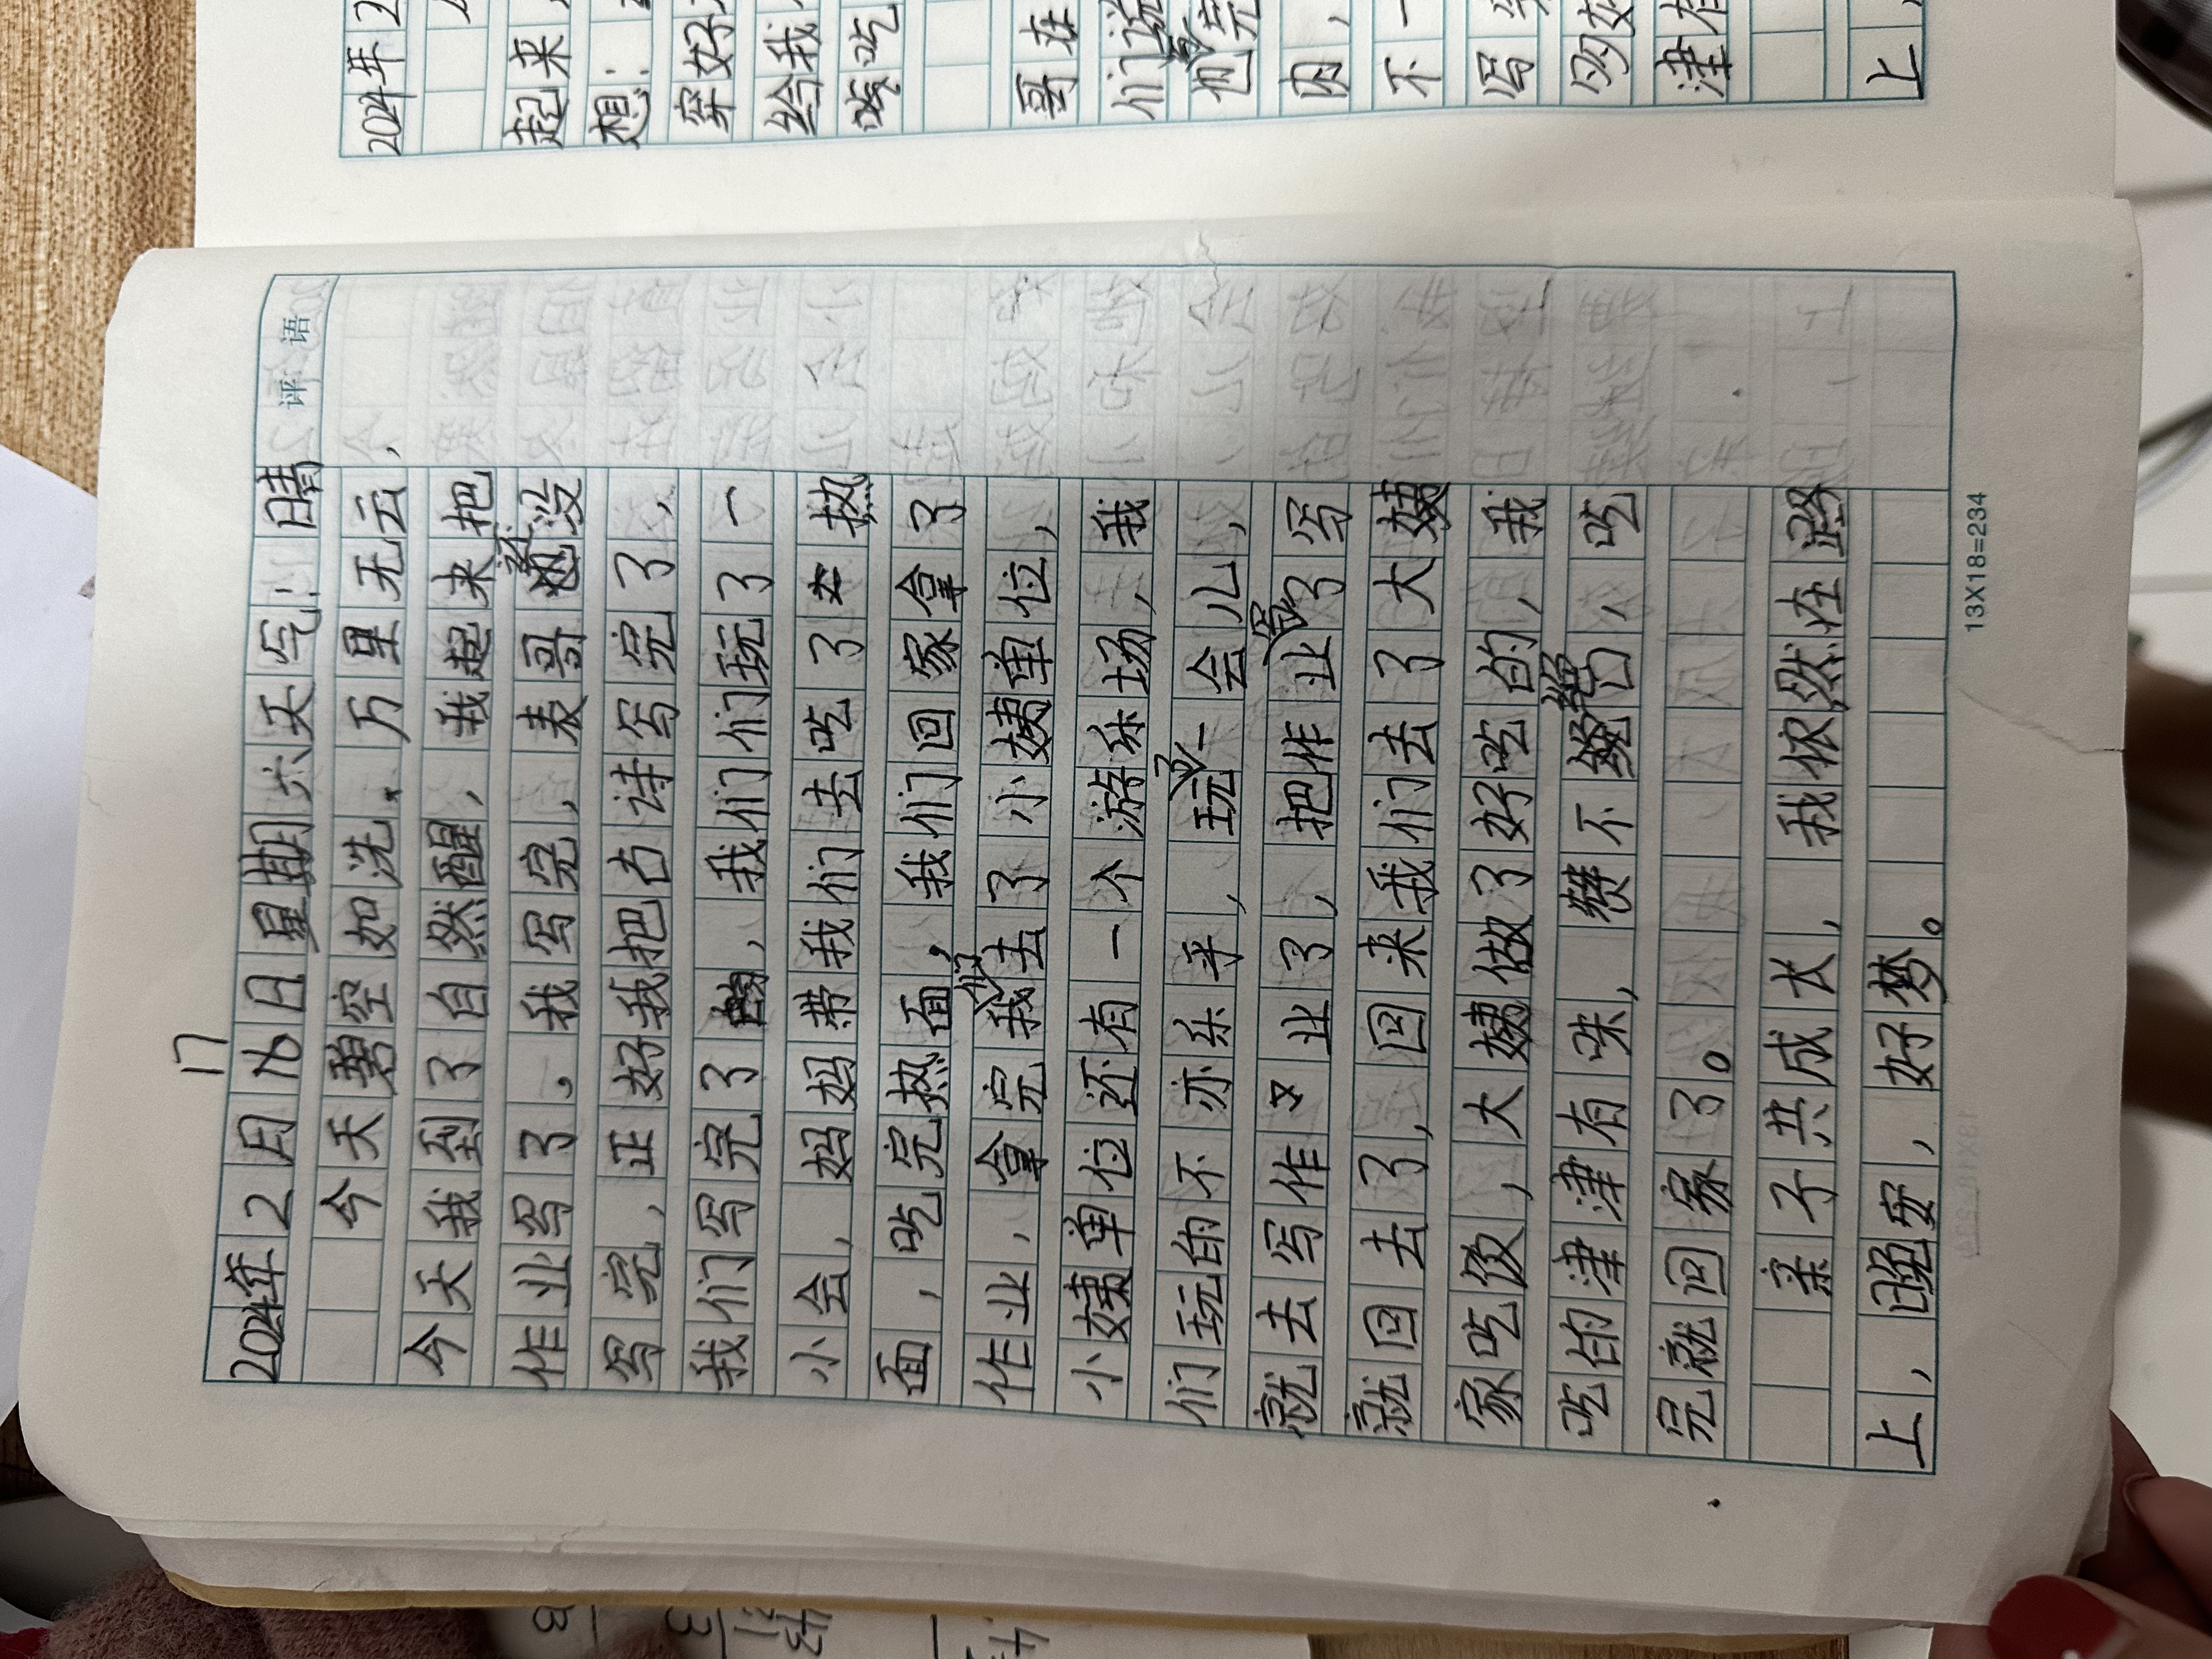 2024年
起来
想：
穿好
给我
喽吃
哥在
们说
他完
肉，
不一
写
的
津有
上，
评语
17
2024年2月16日星期六天气：晴
今天碧空如洗，万里无云，
今天我到了自然醒，我起来把
作业写了。我写完，表哥还没
写完，正好我把古诗写完了，
我们写完了，我们们玩了一
小会，妈妈带我们去吃了热
面，吃完热面，我们回家拿了
作业，拿完我们去了小姨单位，
小姨单位还有一个游乐场，我
们玩的不亦乐乎，玩了一会儿，
就去写作业了，把作业写了写
就回去了，回来我们去了大姨
家吃饭，大姨做了好吃的，我
吃的津津有味，赞不绝口，吃
完就回家了。
亲子共成长，我依然在路
上，晚安，好梦。
13X18=234